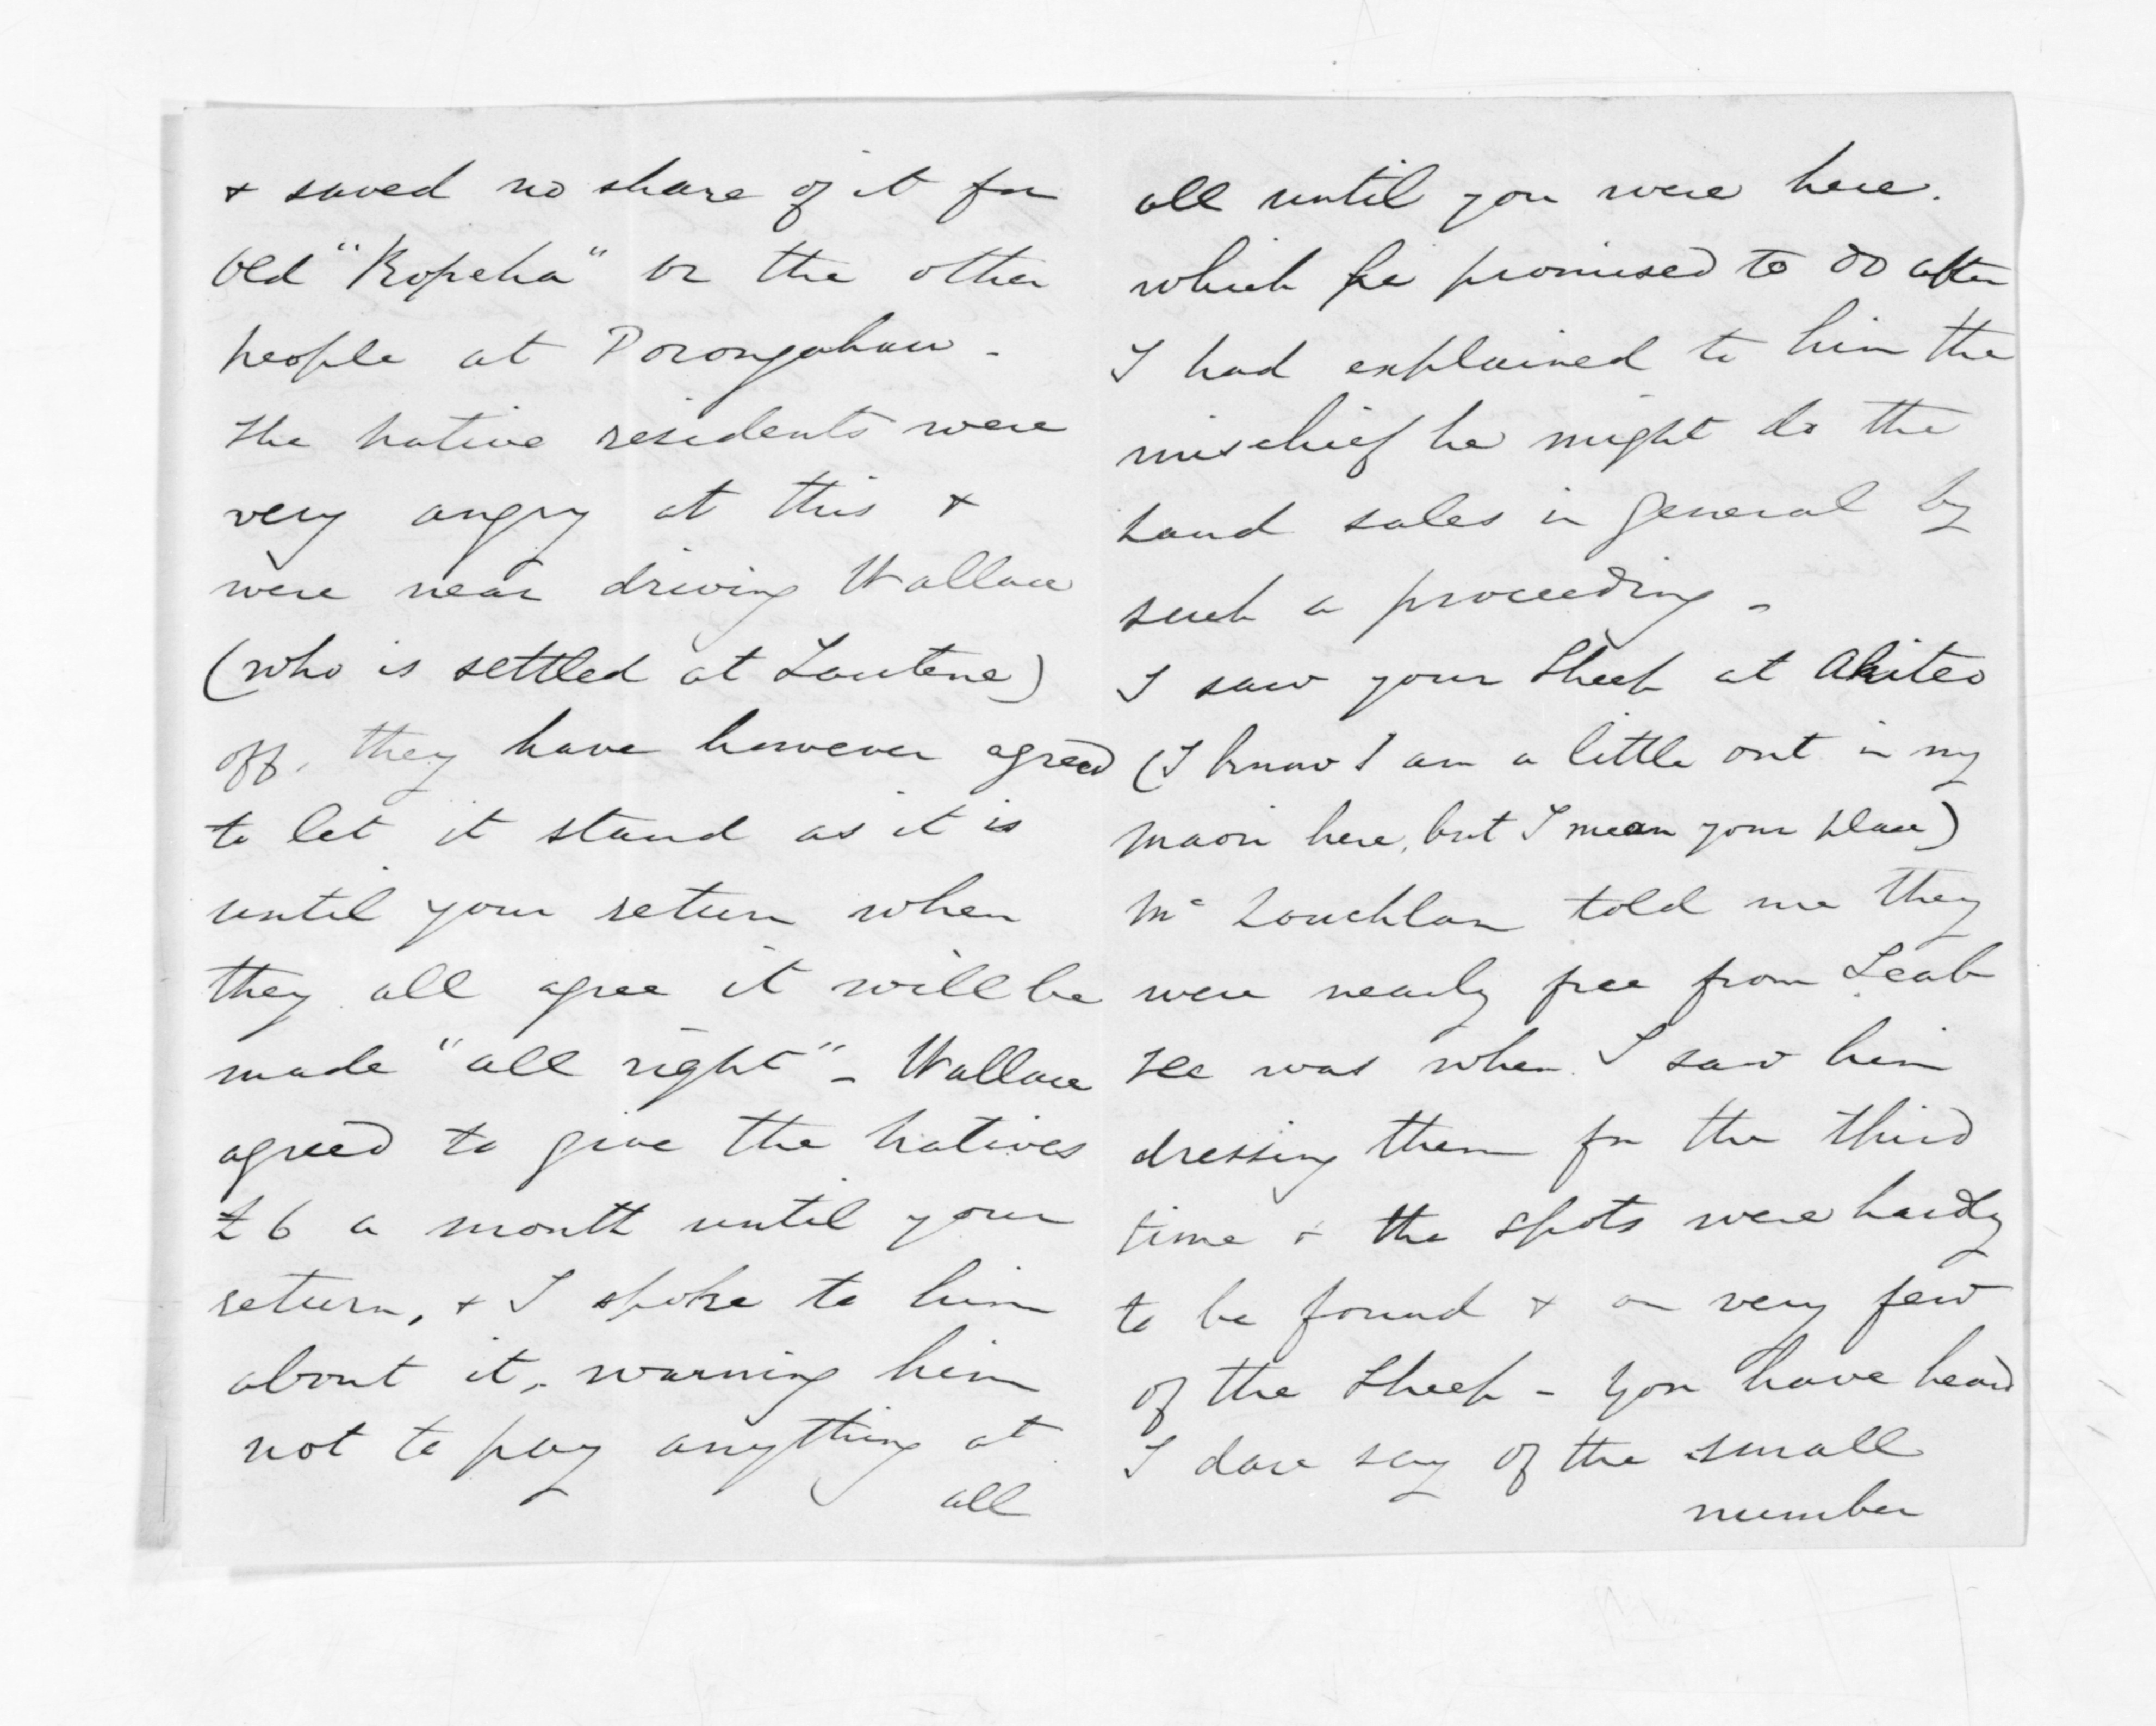 & saved no share of it for
Old "Kopeha" or the other
people at Porongahau -
The native residents were
very angry at this &
were near driving Wallace
(who is settled at Tautene)
off, they have however agreed
to let it stand as it is
until your return when
they all agree it will be
made "all right" - Wallace
agreed to give the natives
£6 a month until your
return, & I spoke to him
about it, warning him
not to pay anything at
all
all until you were here.
which he promised to do after
I had explained to him the
mischief he might do the
Land sales in general by
such a proceeding -
I saw your Sheep at Akiteo
(I know I am a little out in my
maori here, but I mean your place)
Mc Lauchlan told me they
were nearly free from Scab
He was when I saw him
dressing them for the third
time & the spots were hardly
to be found & on very few
of the Sheep - You have heard
I dare say of the small
number